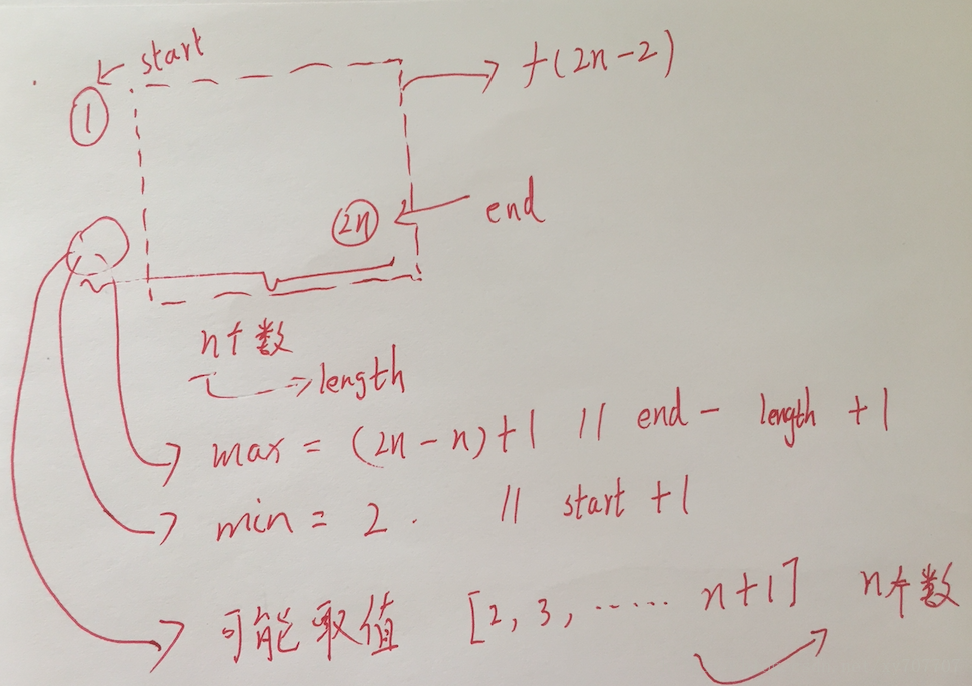 start
① f(2n-2)
②n end
n个数
length
max = (2n-n)+1 // end - length +1
min = 2. // start +1
可能取值 [2, 3, ...... n+1] n个数